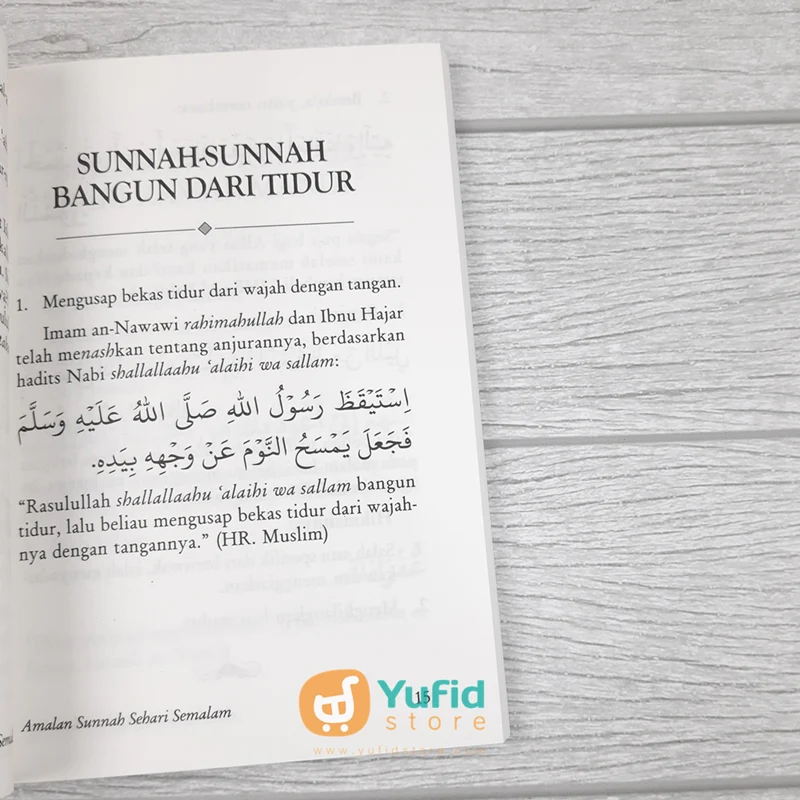 SUNNAH-SUNNAH
BANGUN DARI TIDUR
1. Mengusap bekas tidur dari wajah dengan tangan.
Imam an-Nawawi rahimahullah dan Ibnu Hajar
telah menashkan tentang anjurannya, berdasarkan
hadits Nabi shallallaahu ‘alaihi wa sallam:
اِسْتَيْقَظَ رَسُوْلُ اللهِ صَلَّى اللهُ عَلَيْهِ وَسَلَّمَ
فَجَعَلَ يَمْسَحُ النَّوْمَ عَنْ وَجْهِهِ بِيَدِهِ.
“Rasulullah shallallaahu ‘alaihi wa sallam bangun
tidur, lalu beliau mengusap bekas tidur dari wajah-
nya dengan tangannya.” (HR. Muslim)
Amalan Sunnah Sehari Semalam
15
Yufid
store
www.yufidstore.com